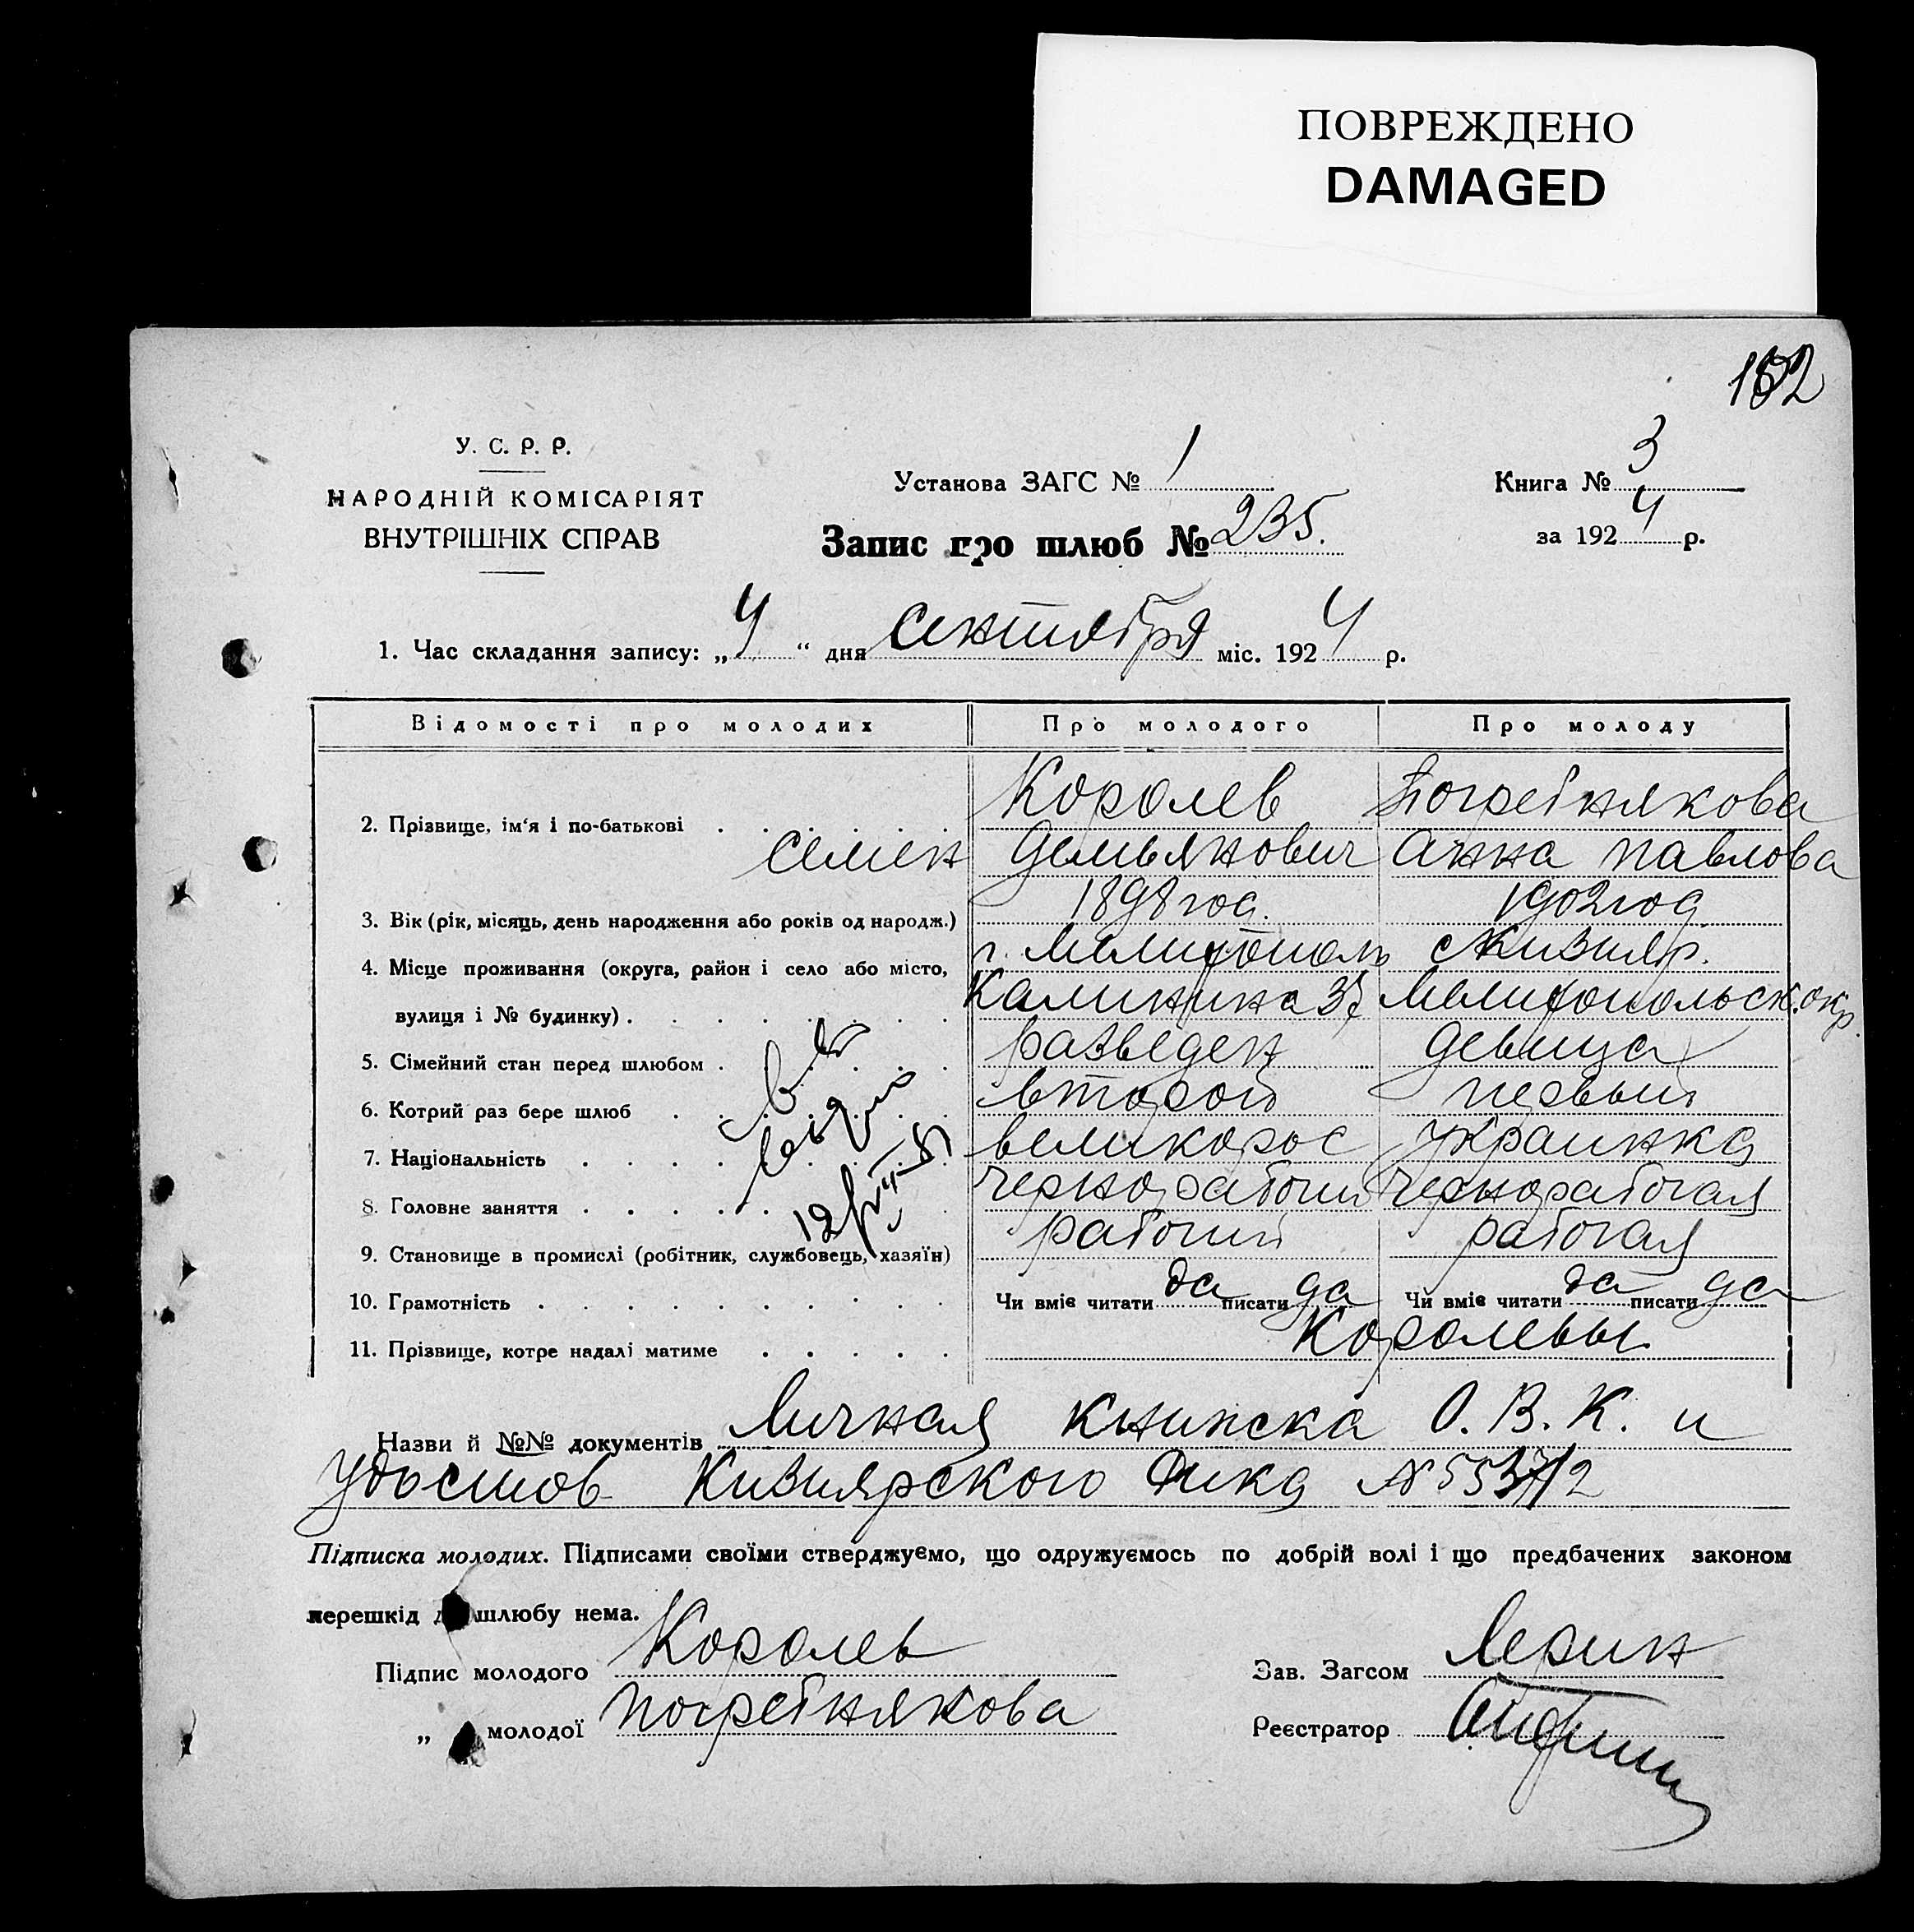 ПОВРЕЖДЕНО
DAMAGED
152
У. С. Р. Р.
НАРОДНІЙ КОМІСАРІЯТ
ВНУТРІШНІХ СПРАВ
Установа ЗАГС № 1
Запис про шлюб № 235.
Книга № 3
за 1924 р.
1. Час складання запису: „4“ дня сентября міс. 1924 р.
Відомості про молодих Про молодого Про молоду
2. Прізвище, ім'я і по-батькові Королев Погребнякова
Семен Демьянович Анна Павлова
3. Вік (рік, місяць, день народження або років од народж.) 1898 год. 1902 год
4. Місце проживання (округа, район і село або місто, г. Мелитополь с Кизияр.
вулиця і № будинку) Калинина 37 Мелитопольск. окр.
5. Сімейний стан перед шлюбом разведен девица
6. Котрий раз бере шлюб второй первый
7. Національність великорос украинка
8. Головне заняття чернорабочий чернорабочая
9. Становище в промислі (робітник, службовець, хазяїн) рабочий рабочая
10. Грамотність Чи вміє читати да писати да Чи вміє читати да писати да
11. Прізвище, котре надалі матиме Королевы
Назви й №№ документів Личная книжка О. В. К. и
удостов Кизиярского
Підписка молодих. Підписами своїми стверджуємо, що одружуємось по добрій волі і що предбачених законом
перешкід до шлюбу нема.
Підпис молодого Королев
Зав. Загсом
„ молодої Погребнякова
Реєстратор